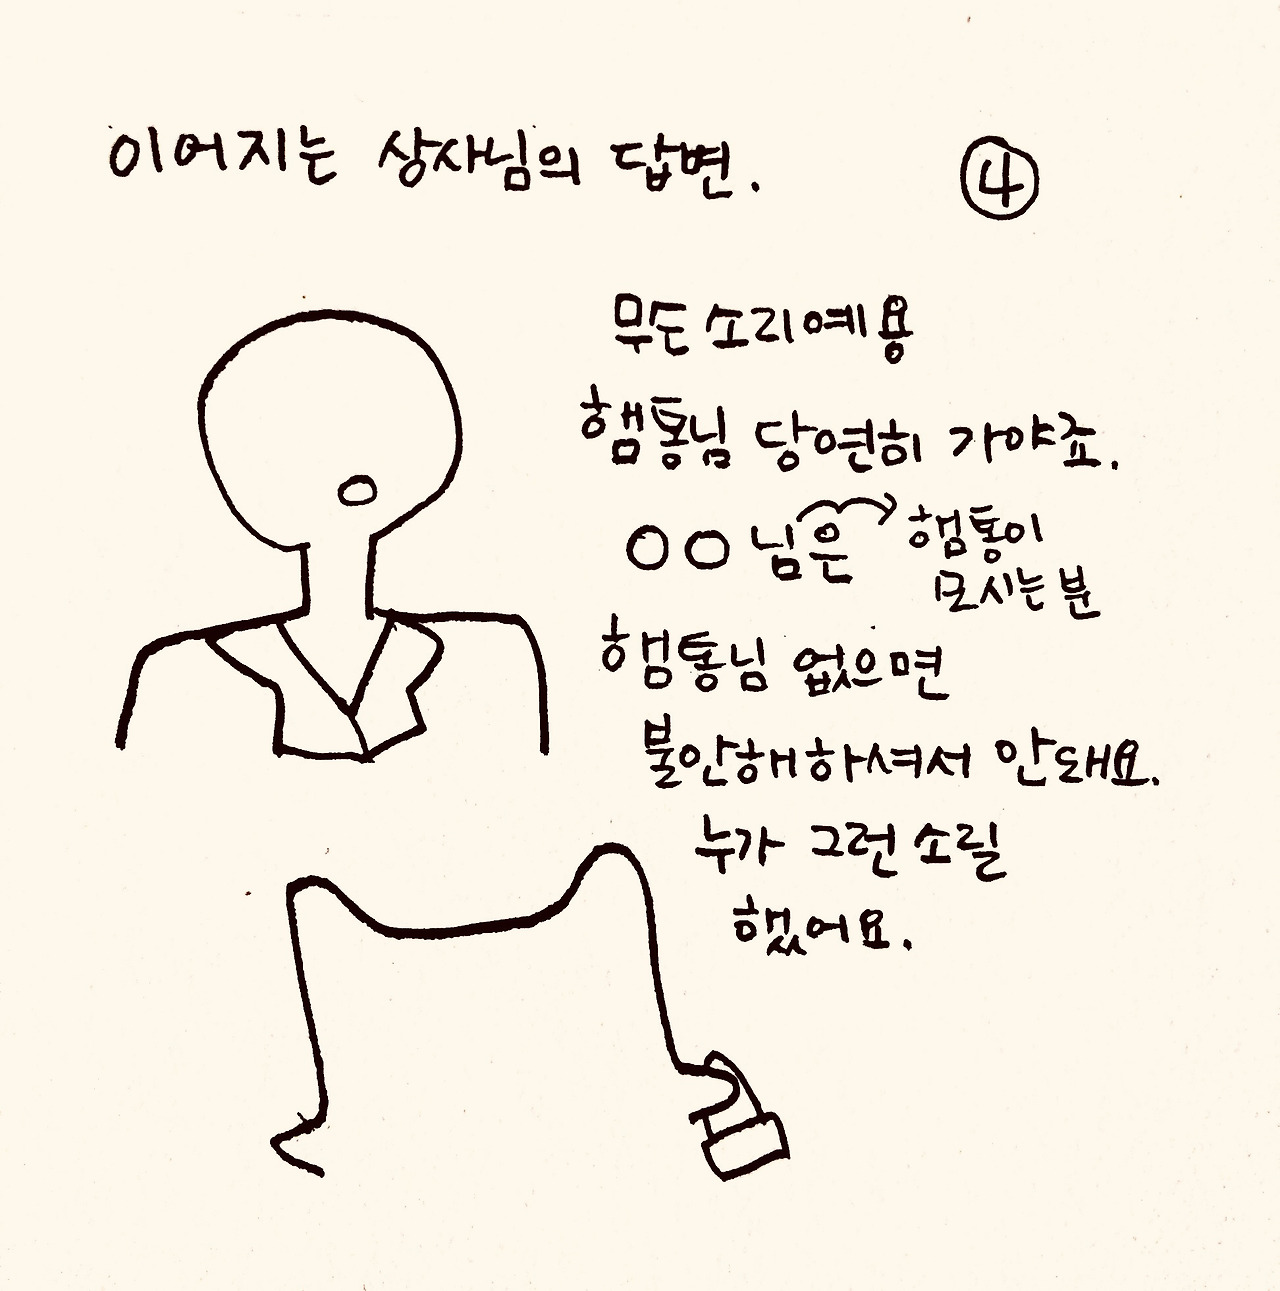 이어지는 상사님의 답변.
④
무든소리예용
햄통님 당연히 가야죠.
○○님은 → 햄통이
모시는 분
햄통님 없으면
불안해하셔서 안돼요.
누가 그런 소릴
했어요.